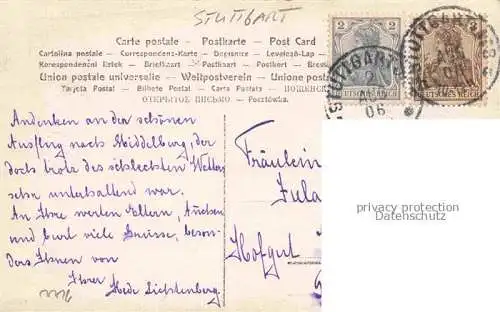 STUTTGART
Carte postale - Postkarte - Post Card
Cartolina postale - Correspondenz-Karte - Dopisnice - Levelező-Lap -
Korespondenční listek - Briefkaart - Postkart - Postkort - Brevkort -
Union postale universelle - Weltpostverein - Unione post
Tarjeta Postal - Bilhete Postal - Carta Postala -
ОТКРЫТОЕ ПИСЬМО - Pocztówka.
2 2
DEUTSCHES REICH
DEUTSCHES REICH
STUTTGART
2
AUG
06
STUTTGART
Andenken an den schönen
Ausflug nach Middelburg, der
doch trotz des schlechten Wetters
sehr unterhaltend war.
An Ihre werten Eltern,
und Kurt viele Grüsse, beson-
ders Ihnen von
Ihrer Hede Lichtenberg
Fräulein
Hofgut
privates
Datenschutz